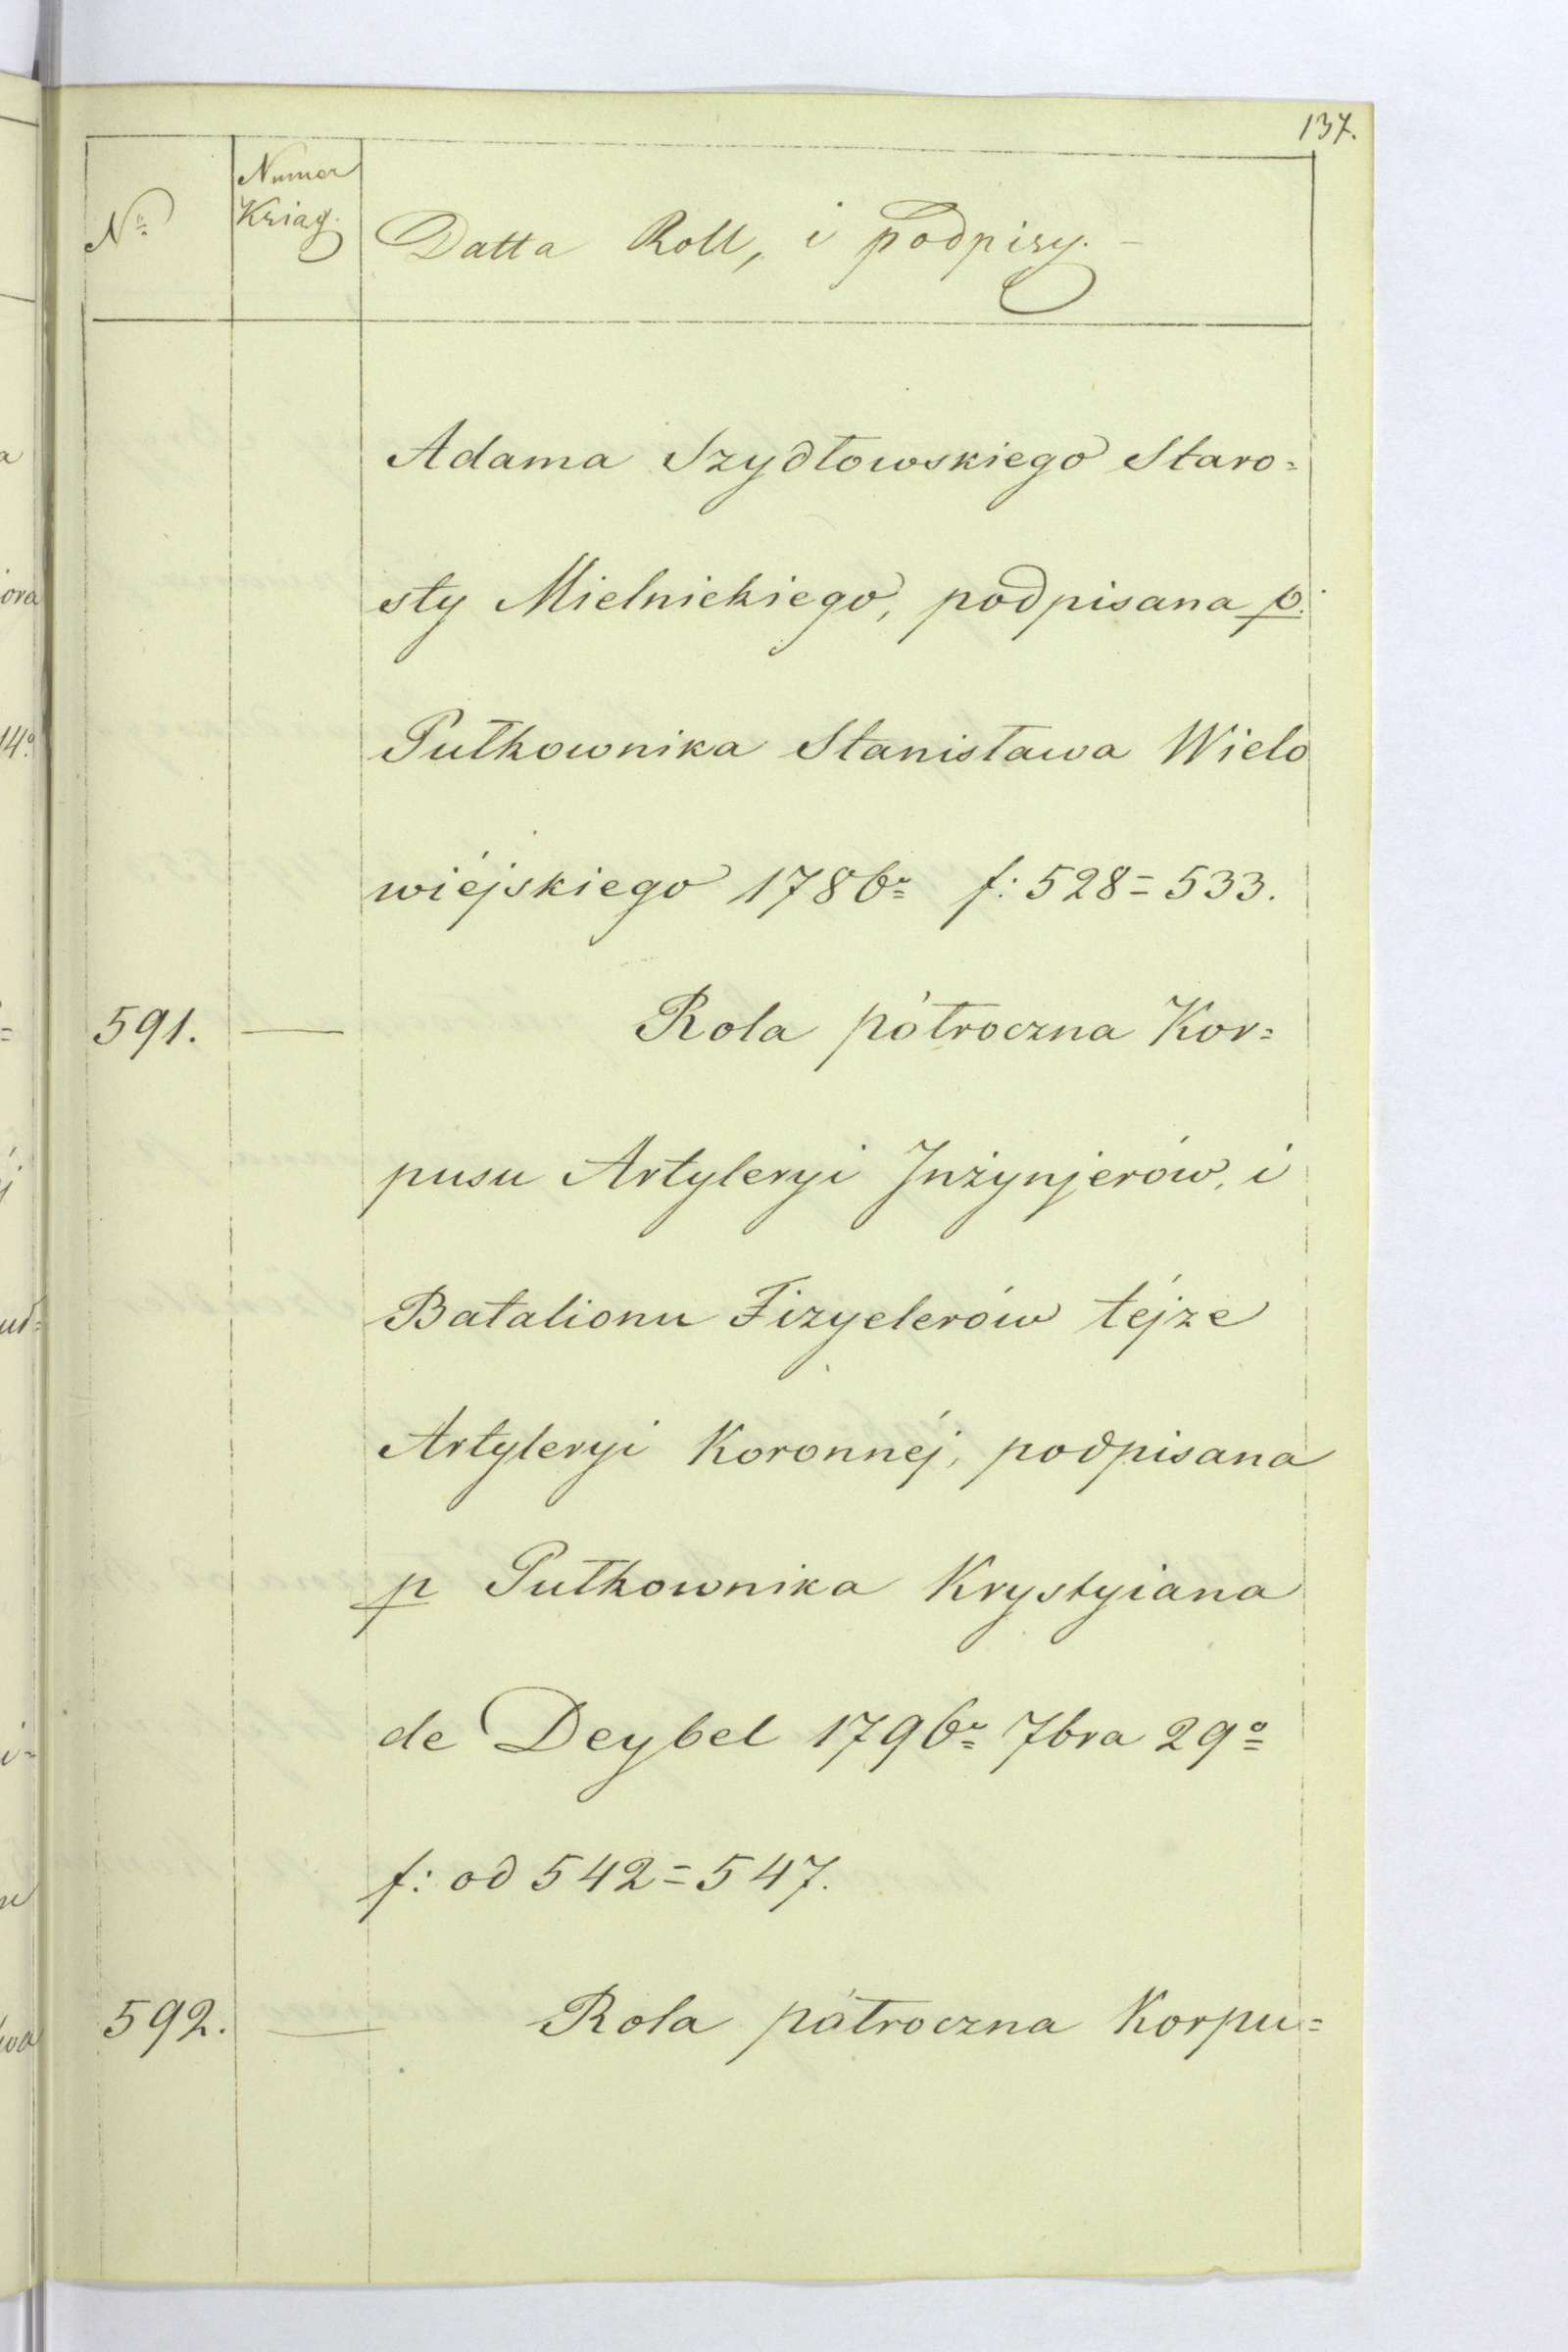 137.
Nº
Numer
Kziag.
Datta Roll, i podpisy. –
Adama Szydłowskiego Staro=
sty Mielnickiego, podpisana p.
Pułkownika Stanisława Wielo
wiéjskiego 1786º f: 528=533.
591. — Rola półroczna Kor=
pusu Artyleryi Inżynjerów, i
Batalionu Fizyelerów téjze
Artyleryi Koronnéj, podpisana
p Pułkownika Krystyiana
de Deybel 1796º 7bra 29º
f: od 542=547.
592. — Rola półroczna Korpu=